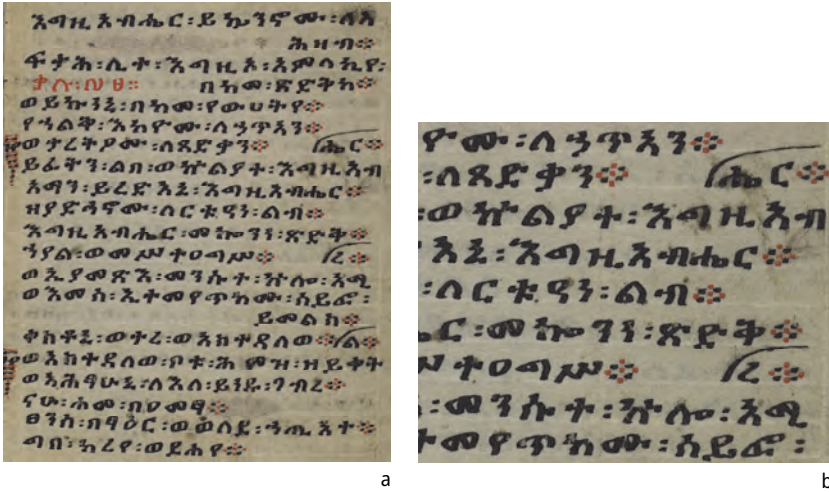 እግዚአብሔር፡ይኴንኖሙ፡ለአ
ሕዛብ፨
ፍታሕ፡ሊተ፡እግዚኦ፡አምላኪየ፡
በከመ፡ጽድቅከ፨
ወይኩነኒ፡በከመ፡የውሀትየ፨
የኀልቅ፡እከዮሙ፡ለኃጥኣን፨
ወታረትዖሙ፡ለጻድቃን፨ ሔር፨
ይፈትን፡ልበ፡ወኵልያተ፡እግዚአብ
አማን፡ይረድአኒ፡እግዚአብሔር፨
ዘያድኅኖሙ፡ለርቱዓነ፡ልብ፨
እግዚአብሔር፡መኰንነ፡ጽድቅ፨
ኀያል፡ወመሥተዐግሥ፨ ረ፨
ወኢያመጽእ፡መንሱተ፡ኵሎ፡አሚ
ወእመሰ፡ኢተመየጥክሙ፡ሰይፎ፡
ይመልኅ፨
ቀስቶኒ፡ወተረ፡ወአስተዳለወ፨ ል፨
ወአስተዳለወ፡ቦቱ፡ሕምዘ፡ዘይቀት
ወአሕፃሁኒ፡ለእለ፡ይነዱ፡ገብረ፨
ናሁ፡ሐመ፡በዐመፃ፨
ፀንሰ፡በጻዕር፡ወወለደ፡ኃጢአተ፨
ግበ፡ከረየ፡ወደሐየ፨
a
ዮሙ፡ለኃጥኣን፨
፡ለጻድቃን፨ ሔር፨
ወኵልያተ፡እግዚአብ
አኒ፡እግዚአብሔር፨
፡ለርቱዓነ፡ልብ፨
ር፡መኰንነ፡ጽድቅ፨
ሥተዐግሥ፨ ረ፨
፡መንሱተ፡ኵሎ፡አሚ
ተመየጥክሙ፡ሰይፎ፡
b